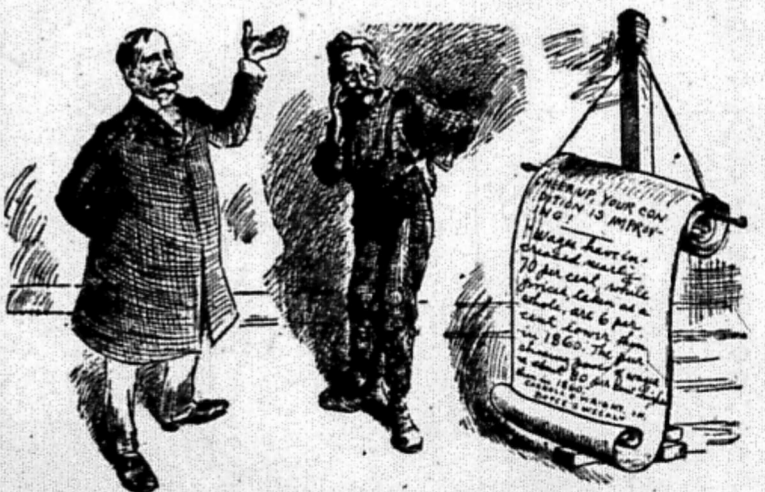 CHEER UP, YOUR CON
DITION IS IMPROV-
ING!
Wages have in-
creased nearly
70 per cent, while
prices, taken as a
whole, are 6 per
cent lower than
in 1860. The pur
chasing power of wages
is about 80 per cent
than in 1860
CARROLL D. WRIGHT IN
WEEKLY